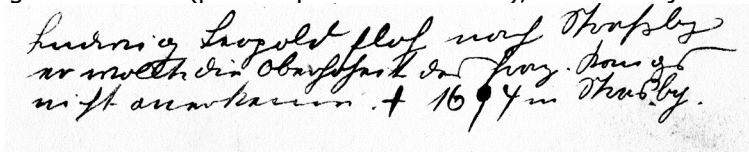 Ludwig Leopold floh nach Straßbg
er wollte die Oberhoheit des franz. Königs
nicht anerkennen. † 1694 in Strasbg.